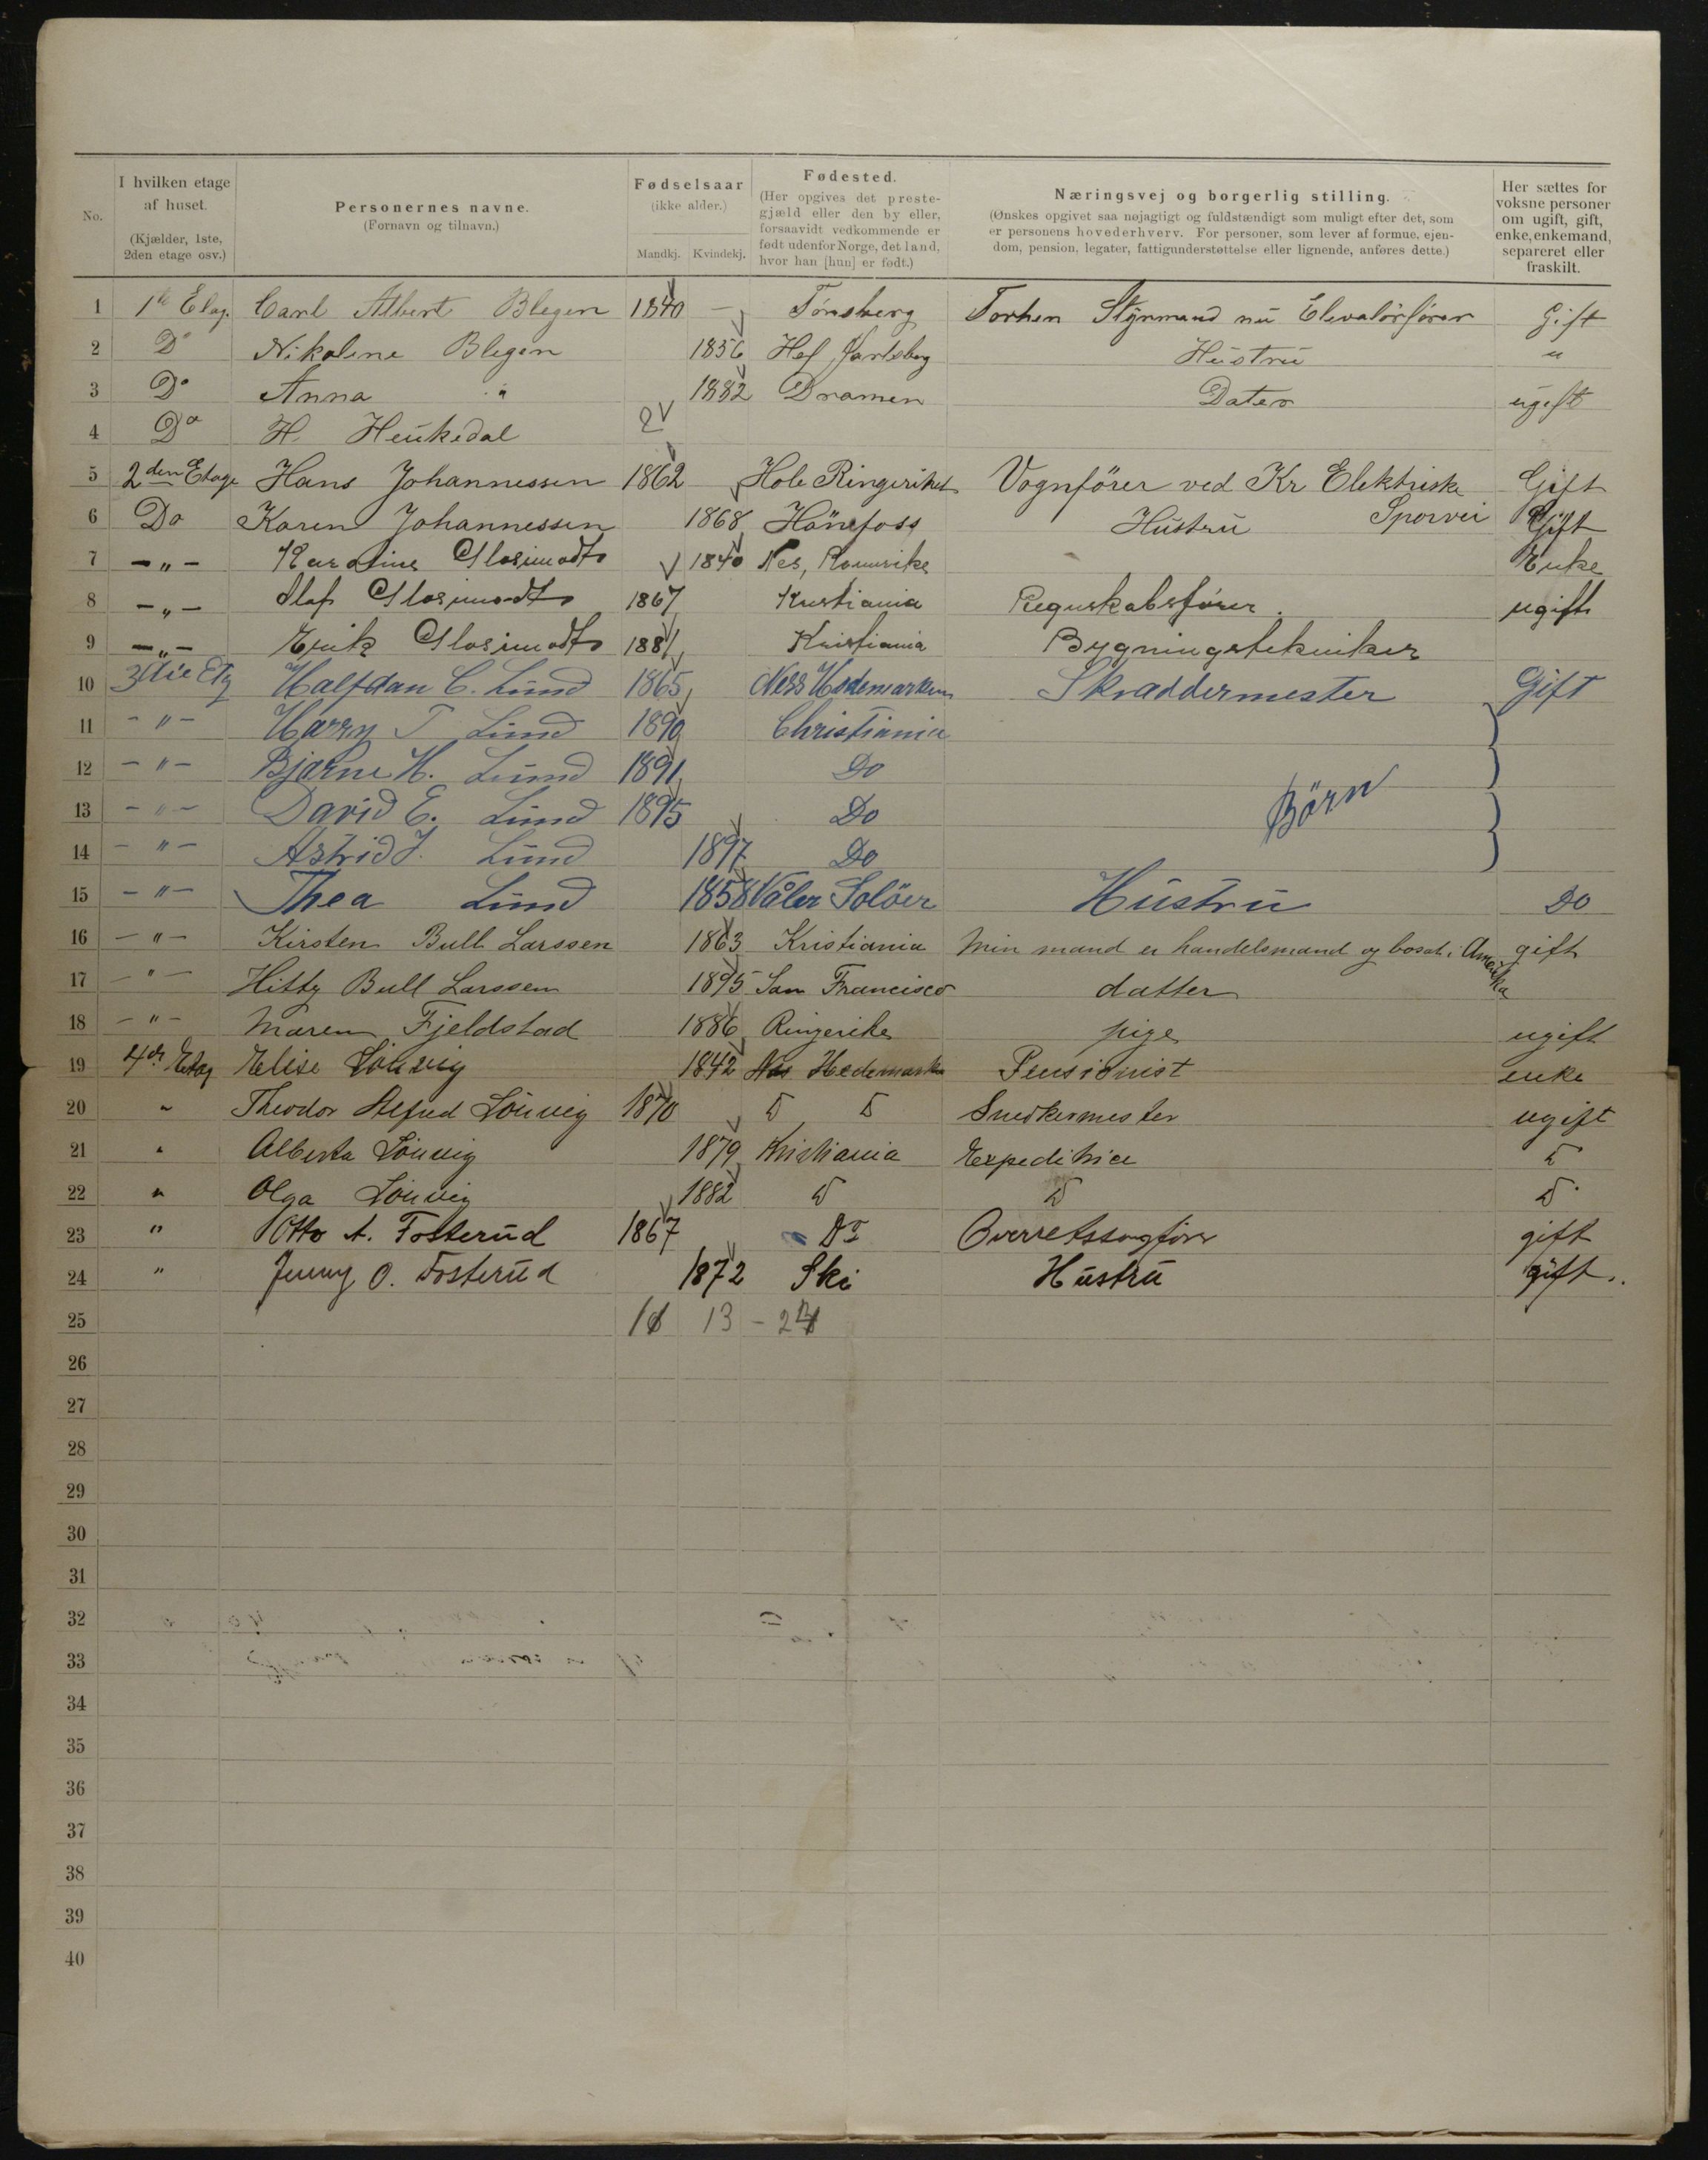 No.
I hvilken etage af huset. (Kjælder, 1ste, 2den etage osv.)
Personernes navne. (Fornavn og tilnavn.)
Fødselsaar (ikke alder.) Mandkj. Kvindekj.
Fødested. (Her opgives det prestegjæld eller den by eller, forsaavidt vedkommende er født udenfor Norge, det land, hvor han [hun] er født.)
Næringsvej og borgerlig stilling. (Ønskes opgivet saa nøjagtigt og fuldstændigt som muligt efter det, som er personens hovederhverv. For personer, som lever af formue, ejendom, pension, legater, fattigunderstøttelse eller lignende, anføres dette.)
Her sættes for voksne personer om ugift, gift, enke, enkemand, separeret eller fraskilt.
1 1ste Etag. Carl Albert Blegen 1840 — Tønsberg Styrmand nu Elevatørfører Gift
2 Do Nikoline Blegen 1856 Jarlsberg Hustru "
3 Do Anna " 1882 Dramen Dater ugift
4 Do H. Heukedal 2
5 2den Etage Hans Johannessen 1862 Hole Ringeriket Vognfører ved Kr Elektriske Sporvei Gift
6 Do Karen Johannessen 1868 Hönefoss Hustru Gift
7 — " — 1840 Nes, Romerike Enke
8 — " — Olaf 1867 Kristiania Regnskabsfører. ugift
9 — " — Erik 1881 Kristiania Bygningstekniker
10 3die Etg Halfdan C. Lund 1865 Ness Hedemarken Skræddermester Gift
11 — " — Harry T Lund 1890 Christiania
12 — " — Bjarne H. Lund 1891 Do
Börn
13 — " — David E. Lund 1895 Do
14 — " — Astrid J. Lund 1897 Do
15 — " — Thea Lund 1858 Våler Solöer Hustru Do
16 — " — Kirsten Bull Larssen 1863 Kristiania Min mand er handelsmand og bosat i Amerika gift
17 — " — Hitty Bull Larssen 1895 San Francisco datter
18 — " — Maren Fjeldstad 1886 Ringerike pige ugift
19 4de Etag Elise Lönvig 1842 Nes Hedemarken Pensionist enke
20 " Theodor Alfred Lönvig 1870 D D Snedkermester ugift
21 " Alberta Lönvig 1879 Kristiania Expeditrice D
22 " Olga Lönvig 1882 D D D
23 " Otto A. Fosterud 1867 Do Overretssagfører gift
24 " Jenny O. Fosterud 1872 Ski Hustru gift.
25 13 —
26
27
28
29
30
31
32
33
34
35
36
37
38
39
40